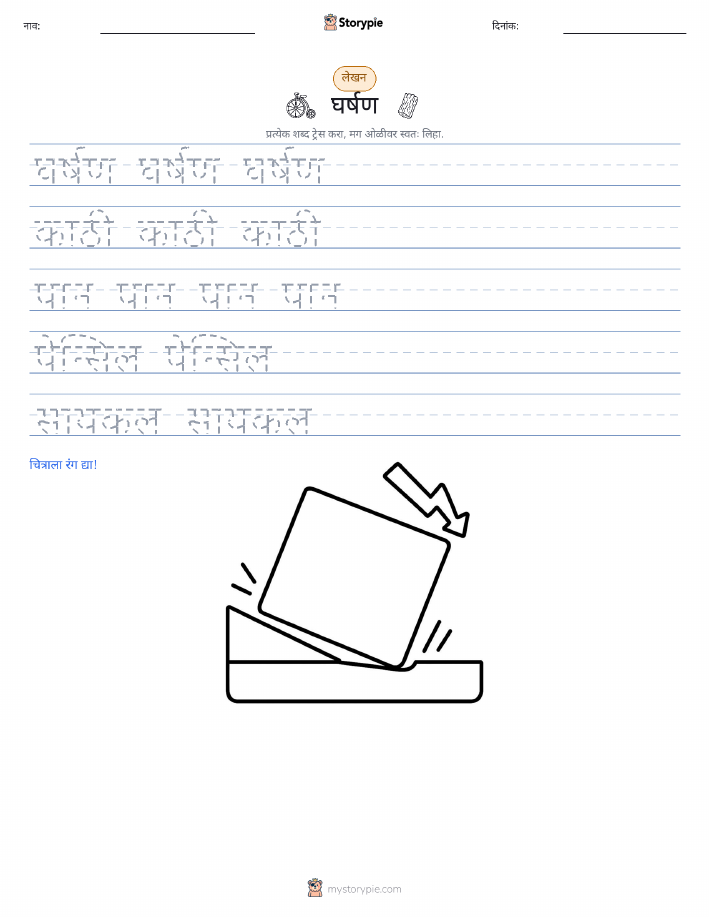 नाव:
Storypie
दिनांक:
लेखन
घर्षण
प्रत्येक शब्द ट्रेस करा, मग ओळीवर स्वतः लिहा.
घर्षण घर्षण घर्षण
काठी काठी काठी
पान पान पान पान
पेन्सिल पेन्सिल
सायकल सायकल
चित्राला रंग द्या!
mystorypie.com